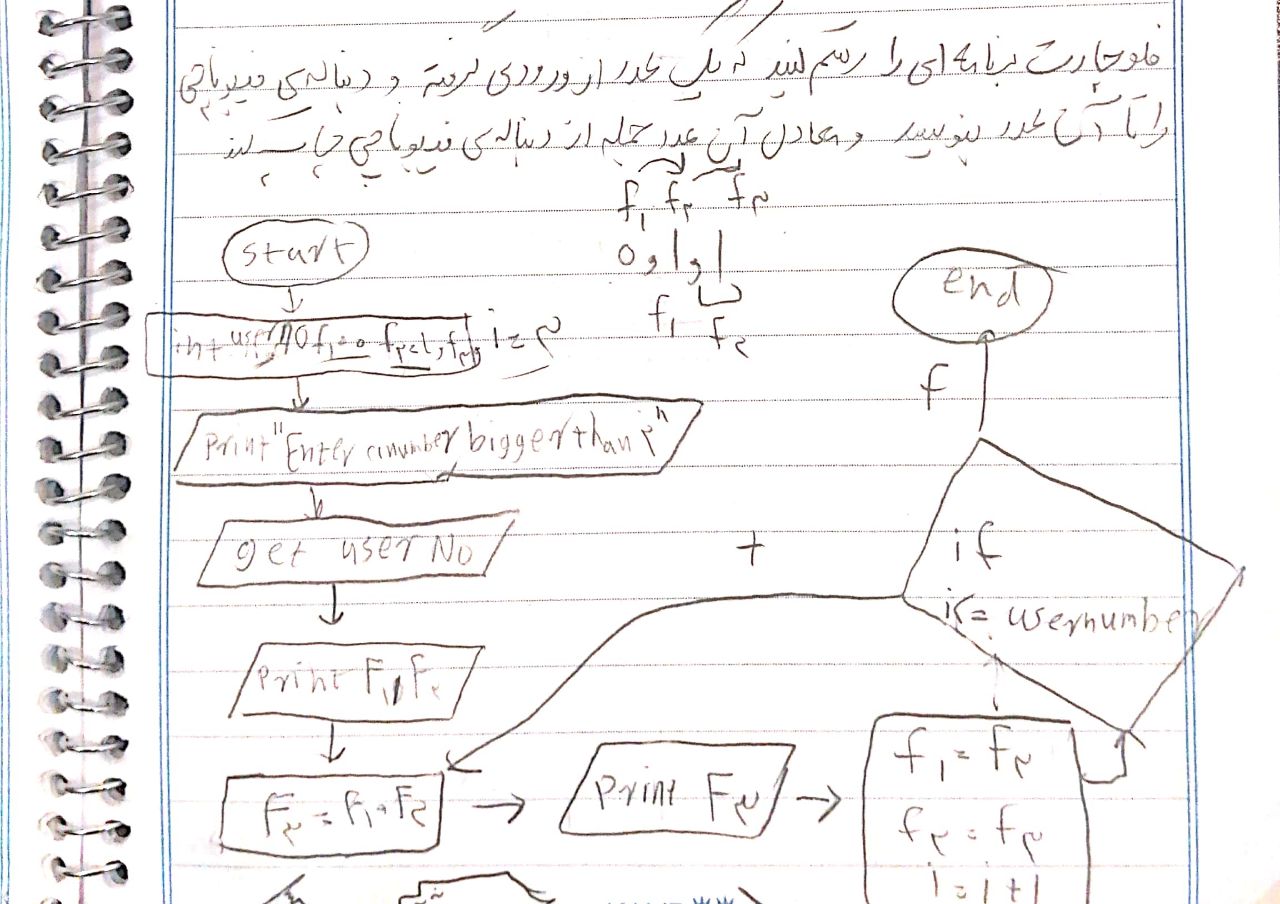 فلوچارت برنامه ای را رسم کنید که یک عدد از ورودی گرفته و دنباله ی فیبوناچی
را تا آن عدد بنویسید و معادل آن عدد جمله از دنباله ی فیبوناچی چاپ کند
f۱ f۲ f۳
0 و 1 و 1
f۱ f۲
start
int userNo f۱=0 f۲=1, f۳, i=۳
print "Enter a number bigger than ۲"
get user No
print F۱, F۲
F۳ = F۱+F۲
print F۳
f۱ = f۲
f۲ = f۳
i=i+1
if
i<= usernumber
+
f
end